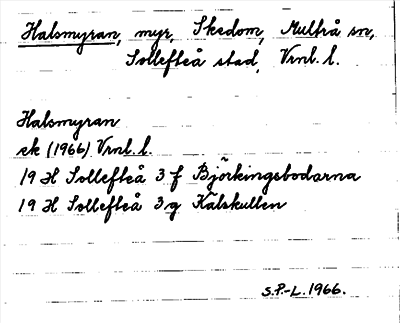 Halsmyran, myr, Skedom, Multrå sn,
Sollefteå stad, Vrnl. l.
Halsmyran
ek (1966) Vrnl. l.
19 H Sollefteå 3 f Björkingsbodarna
19 H Sollefteå 3 g Kälskullen
S.P.-L. 1966.